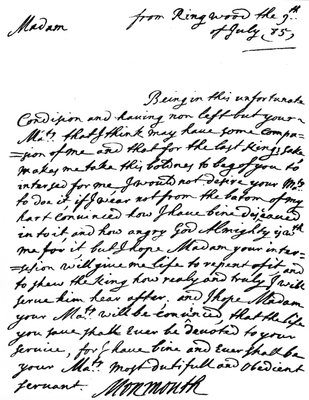 from Ringwood the 9th
Madam of July 85
Being in this unfortunate
Condision and having non left but your
Maty. that I think may have some compa=
=sion of me and that for the last Kings sake
makes me take this boldnes to bag of you to
intersed for me I would not desire your Maty
to doe it if I wear not from the botom of my
hart convinced how I have bine disceaued
into it and how angry God Almighty is with
me for it but I hope Madam your inter=
=sesion will give me life to repent of it and
to shew the King how realy and truly I will
serve him hear after. and I hope Madam
your Maty. will be convinced, that the life
you save shall Ever be devoted to your
service, for I have bine and Ever shall be
your Maty. most dutifull and obedient
servant. Monmouth